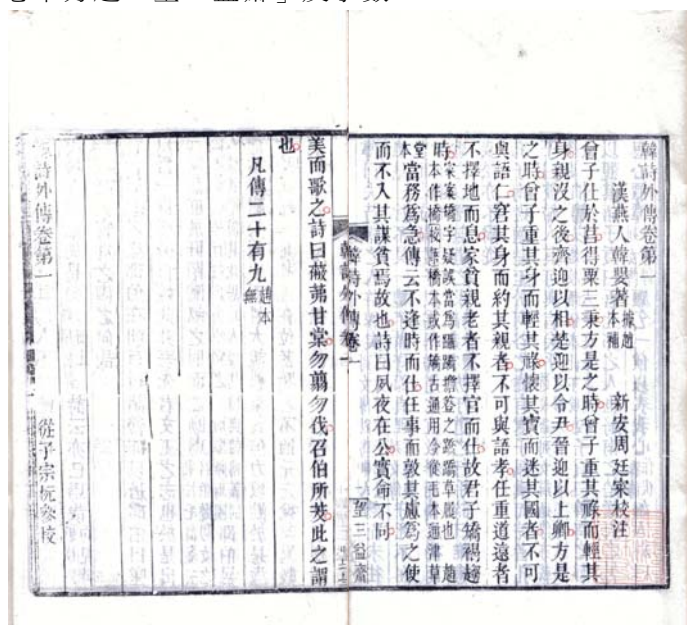 韓詩外傳卷第一
漢燕人韓嬰著據趙本補 新安周廷寀校注
曾子仕於莒得粟三秉方是之時曾子重其祿而輕其
身親沒之後齊迎以相楚迎以令尹晉迎以上卿方是
之時曾子重其身而輕其祿懷其寶而迷其國者不可
與語仁窘其身而約其親者不可與語孝任重道遠者
不擇地而息家貧親老者不擇官而仕故君子矯褐趨
時
當務為急傳云不逢時而仕任事而敦其慮為之使
而不入其謀貧焉故也詩曰夙夜在公實命不同
韓詩外傳卷一
望三益齋
美而歌之詩曰蔽芾甘棠勿翦勿伐召伯所茇此之謂
也
凡傳二十有九趙本無
詩外傳卷第一
從子宗杬參校